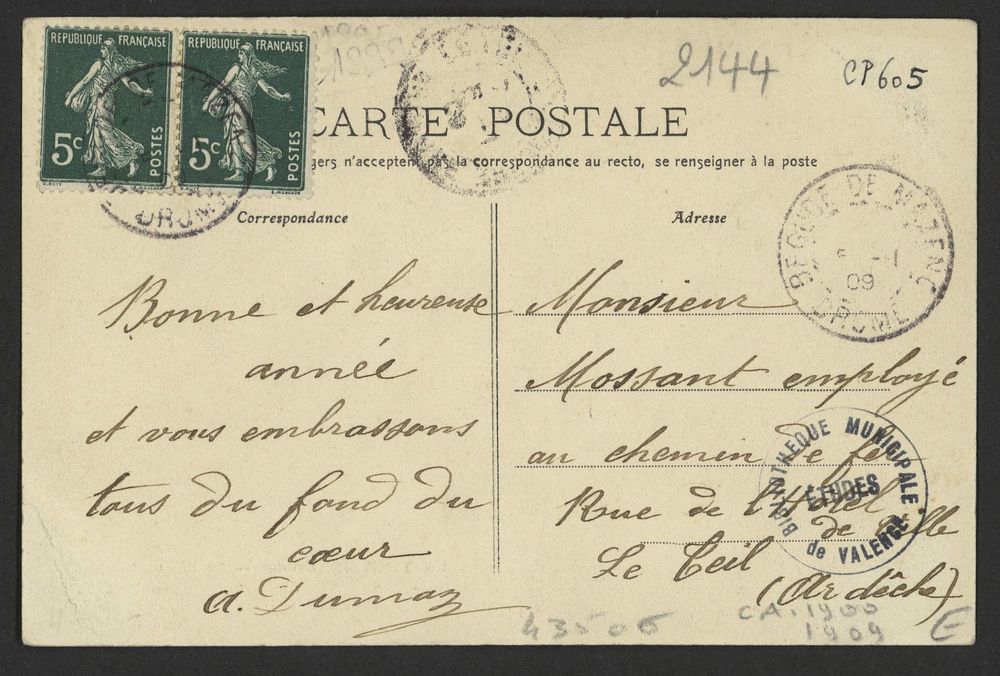 REPUBLIQUE FRANÇAISE
5c
POSTES
REPUBLIQUE FRANÇAISE
5c
POSTES
DROME
2144
CP605
CARTE POSTALE
n'acceptent pas la correspondance au recto, se renseigner à la poste
Correspondance
Bonne et heureuse
année
et vous embrassons
tous du fond du
cœur
A. Dumaz
Adresse
BEGUDE DE MAZENC
5 -1
09
DROME
Monsieur
Mossant employé
au chemin de fer
Rue de l'Hôtel
de Ville
Le Teil
(Ardèche)
BIBLIOTHEQUE MUNICIPALE
ETUDES
de VALENCE
43505
CA.1900
1909
E